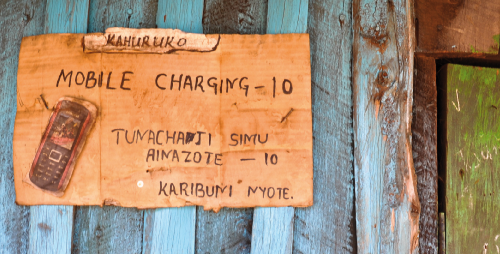 KAHURUKO
MOBILE CHARGING - 10
TUNACHADJI SIMU
AINAZOTE - 10
KARIBUNI NYOTE.